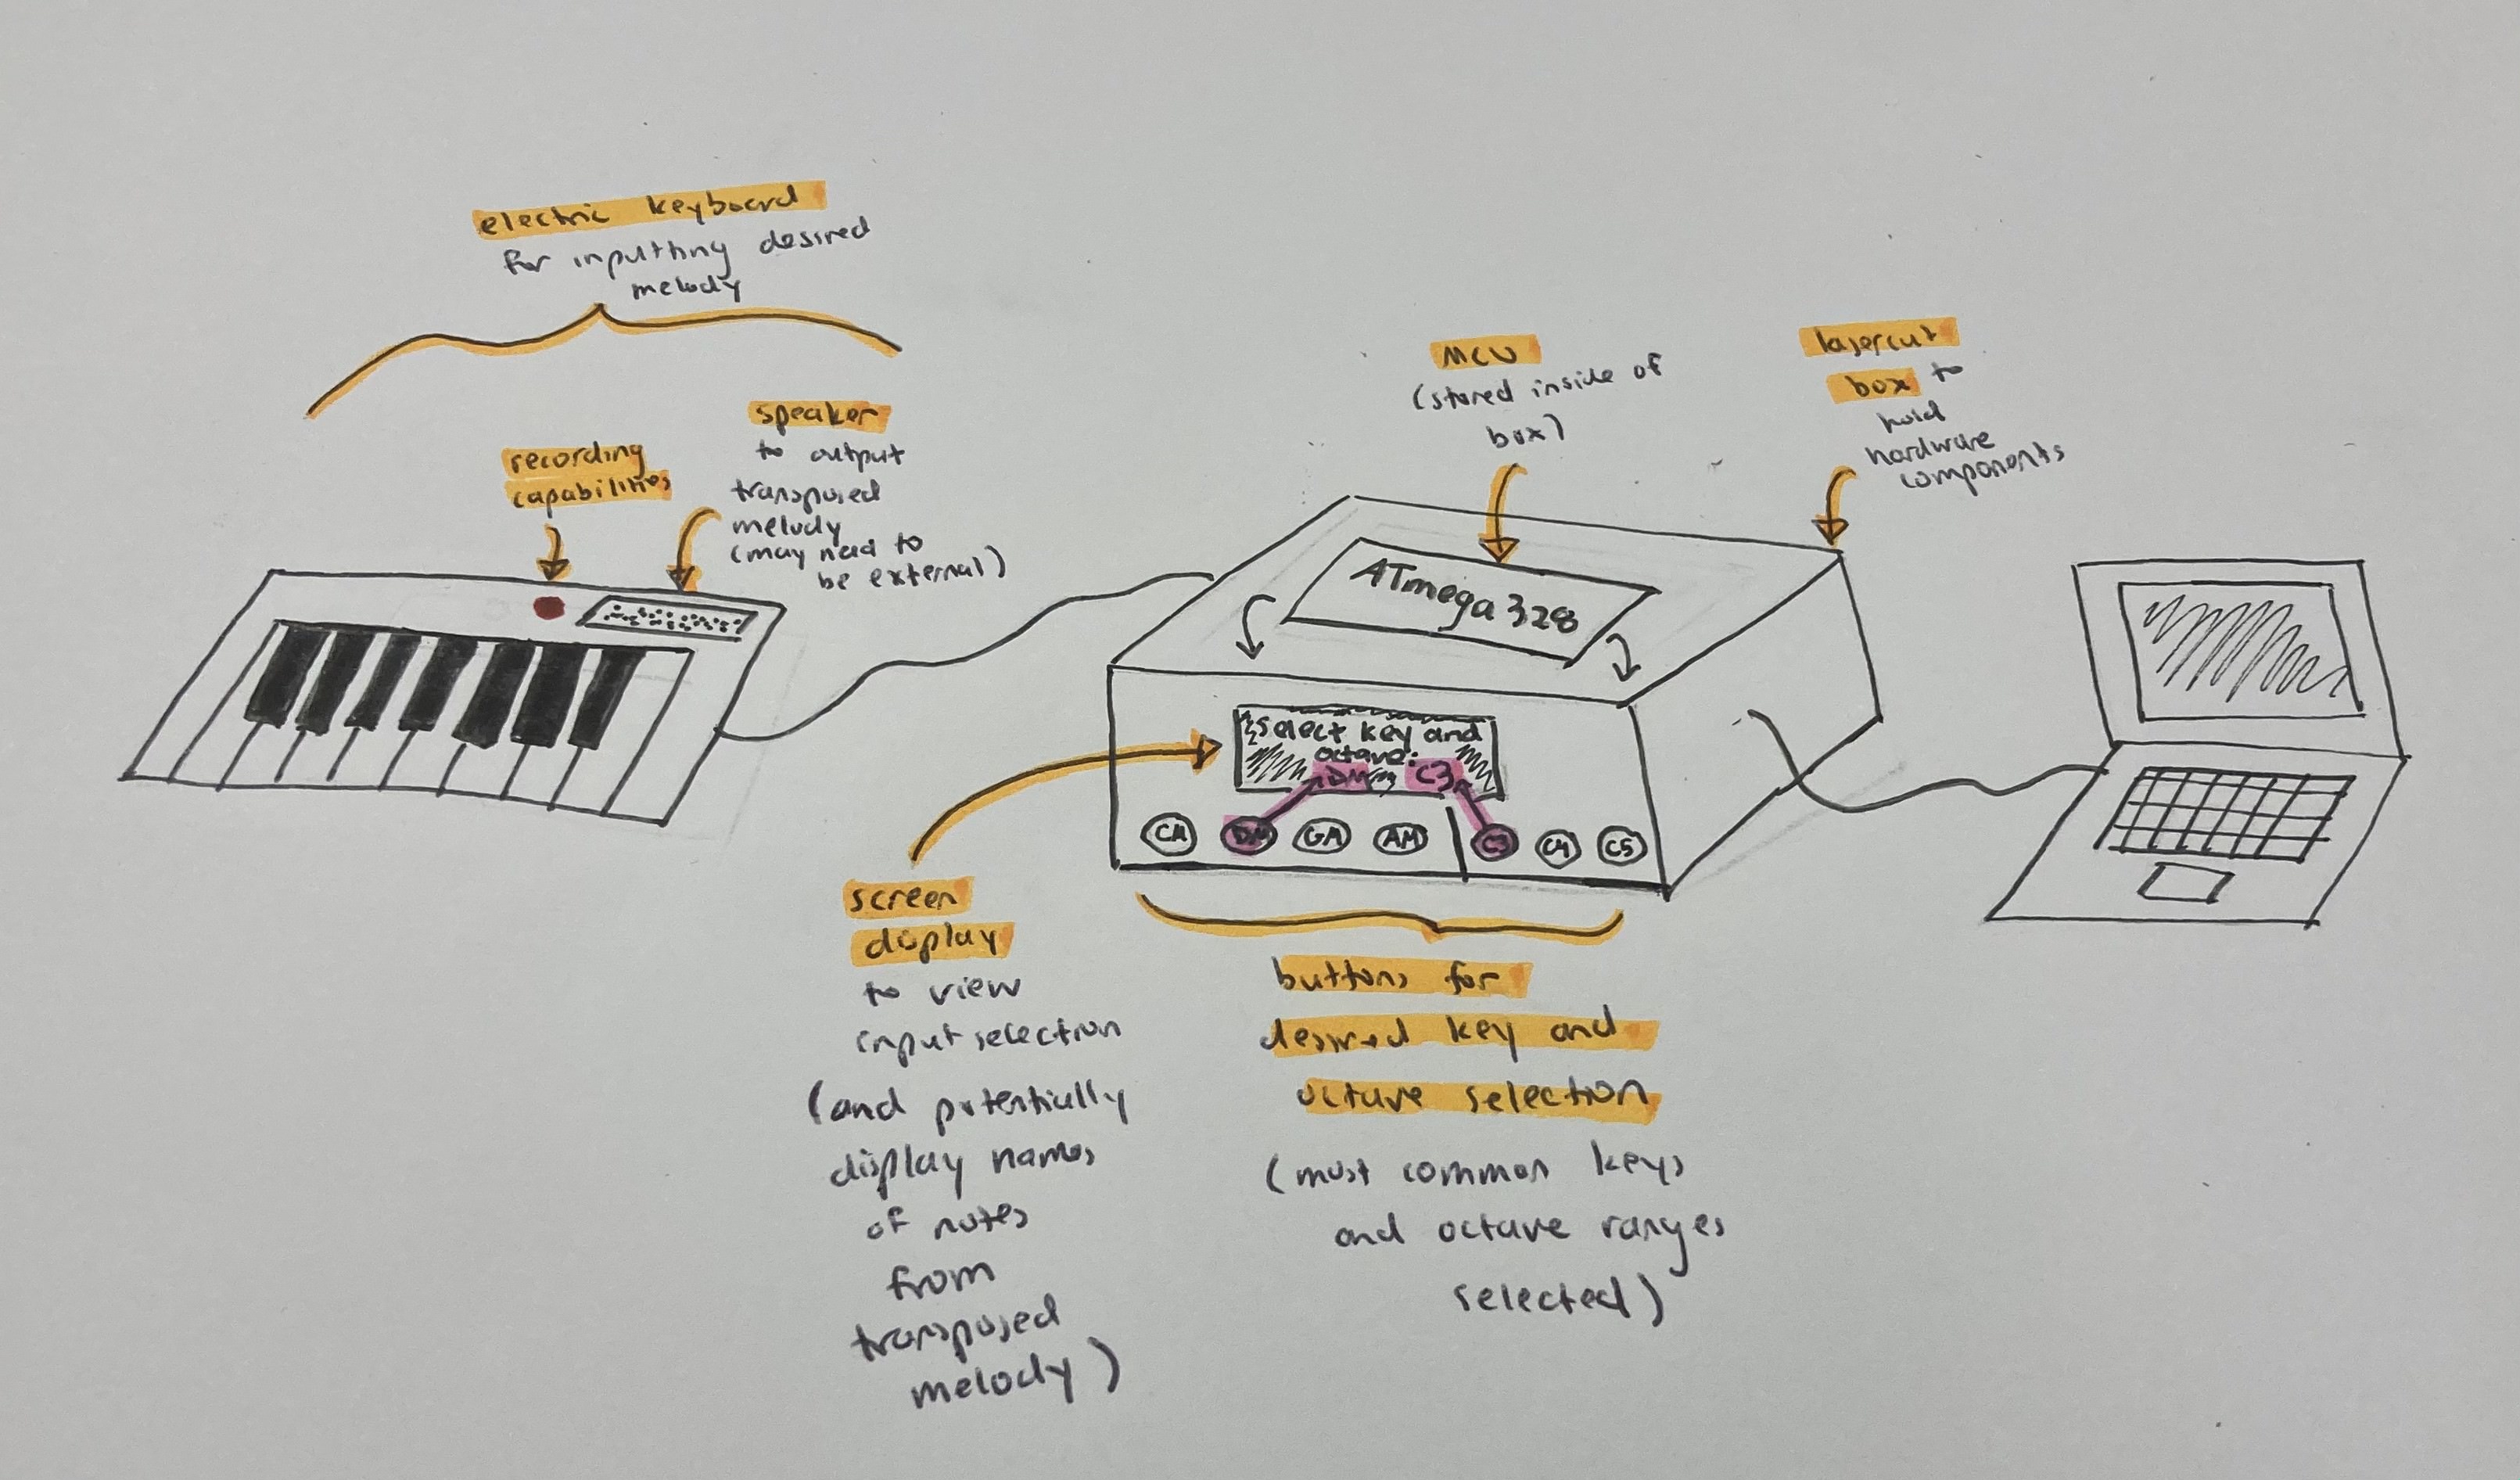 electric keyboard
for inputting desired
melody
recording
capabilities
speaker
to output
transposed
melody
(may need to
be external)
MCU
(stored inside of
box)
lasercut
box to
hold
hardware
components
ATmega 328
select key and
octave:
DM C3
CM DM GM AM C3 C4 C5
screen
display
to view
input selection
(and potentially
display names
of notes
from
transposed
melody)
buttons for
desired key and
octave selection
(most common keys
and octave ranges
selected)